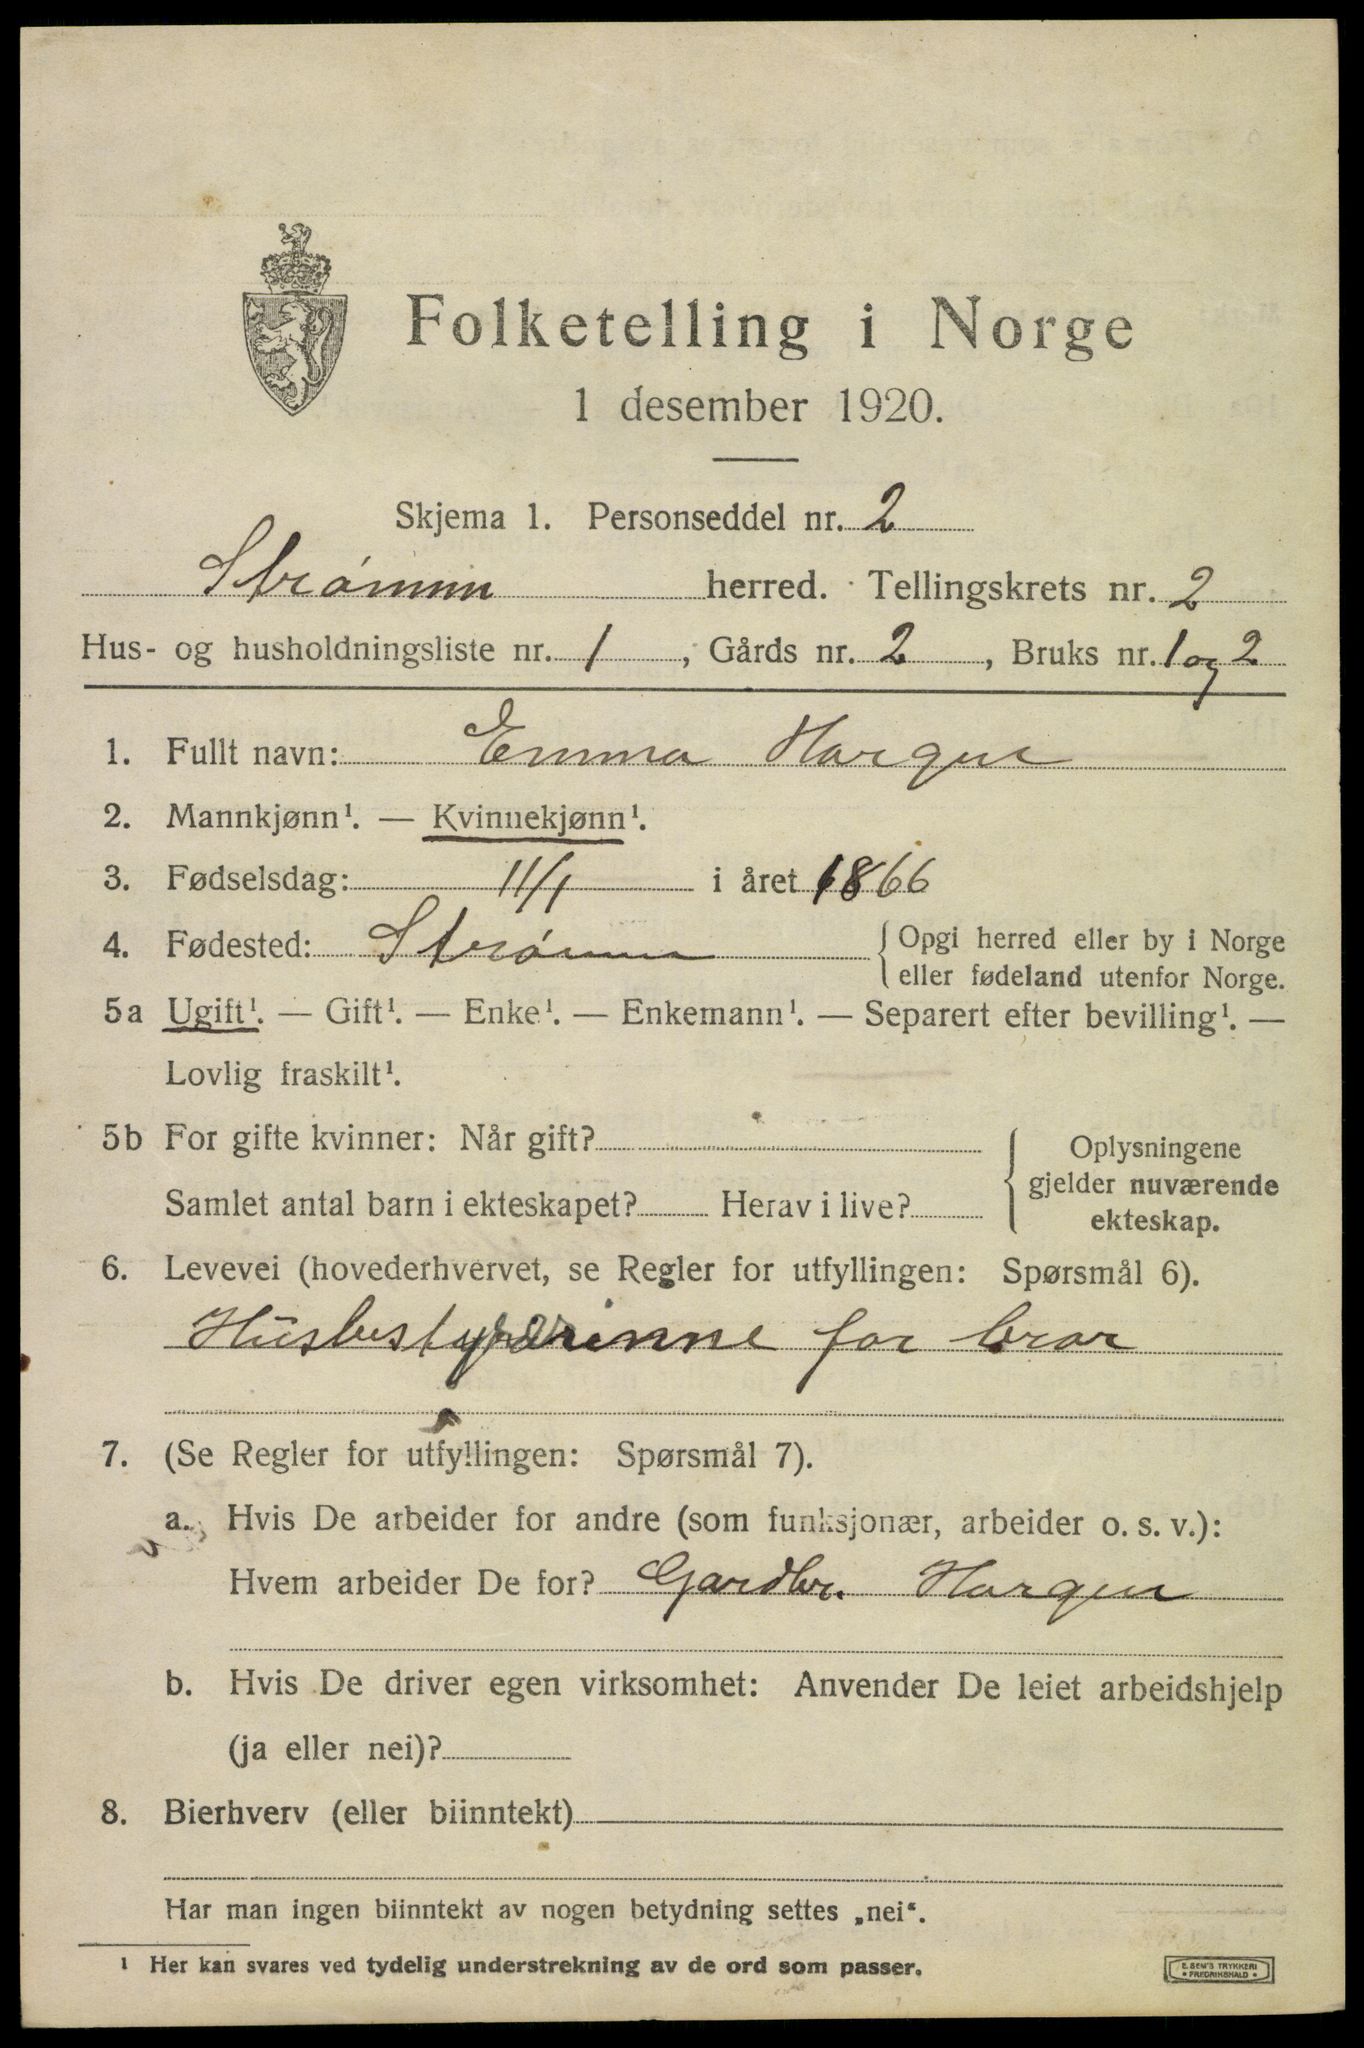 Folketelling i Norge
1 desember 1920.
Skjema 1. Personseddel nr. 2
Strømm herred. Tellingskrets nr. 2
Hus- og husholdningsliste nr. 1, Gårds nr. 2, Bruks nr. 1 og 2
1. Fullt navn: Emma Horgen
2. Mannkjønn¹. — Kvinnekjønn¹.
3. Fødselsdag: 11/1 i året 1866
4. Fødested: Strømm { Opgi herred eller by i Norge
eller fødeland utenfor Norge.
5a Ugift¹. — Gift¹. — Enke¹. — Enkemann¹. — Separert efter bevilling¹. —
Lovlig fraskilt¹.
5b For gifte kvinner: Når gift?
Samlet antal barn i ekteskapet? Herav i live?
Oplysningene
gjelder nuværende
ekteskap.
6. Levevei (hovederhvervet, se Regler for utfyllingen: Spørsmål 6).
Husbestyrerinne for bror
7. (Se Regler for utfyllingen: Spørsmål 7).
a. Hvis De arbeider for andre (som funksjonær, arbeider o. s. v.):
Hvem arbeider De for? Gardbr. Horgen
b. Hvis De driver egen virksomhet: Anvender De leiet arbeidshjelp
(ja eller nei)?
8. Bierhverv (eller biinntekt)
Har man ingen biinntekt av nogen betydning settes „nei“.
¹ Her kan svares ved tydelig understrekning av de ord som passer.
E. SEM'S TRYKKERI
• FREDRIKSHALD •